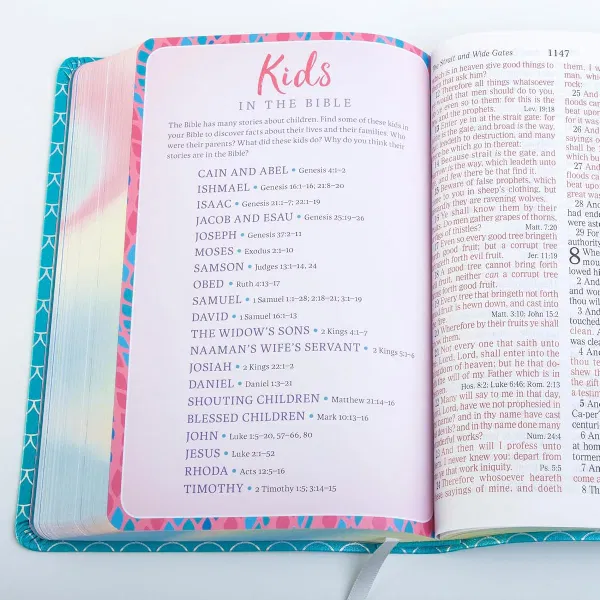 Kids
IN THE BIBLE
The Bible has many stories about children. Find some of these kids in
your Bible to discover facts about their lives and their families. Who
were their parents? What did these kids do? Why do you think their
stories are in the Bible?
CAIN AND ABEL • Genesis 4:1–2
ISHMAEL • Genesis 16:1–16; 21:8–20
ISAAC • Genesis 21:1–7; 22:1–19
JACOB AND ESAU • Genesis 25:19–26
JOSEPH • Genesis 37:2–11
MOSES • Exodus 2:1–10
SAMSON • Judges 13:1–14, 24
OBED • Ruth 4:13–17
SAMUEL • 1 Samuel 1:1–28; 2:18–21; 3:1–19
DAVID • 1 Samuel 16:1–13
THE WIDOW'S SONS • 2 Kings 4:1–7
NAAMAN'S WIFE'S SERVANT • 2 Kings 5:1–4
JOSIAH • 2 Kings 22:1–2
DANIEL • Daniel 1:3–21
SHOUTING CHILDREN • Matthew 21:14–16
BLESSED CHILDREN • Mark 10:13–16
JOHN • Luke 1:5–20, 57–66, 80
JESUS • Luke 2:1–52
RHODA • Acts 12:5–16
TIMOTHY • 2 Timothy 1:5; 3:14–15
The Strait and Wide Gates 1147
which is in heaven give good things to
that ask him?
12 Therefore all things whatsoever
would that men should do to you,
even so to them: for this is the
and the prophets. Lev. 19:18
Enter ye in at the strait gate: for
is the gate, and broad is the way,
leadeth to destruction, and many
which go in thereat:
Because strait is the gate, and
is the way, which leadeth unto
and few there be that find it.
Beware of false prophets, which
to you in sheep's clothing, but
they are ravening wolves.
Ye shall know them by their
Do men gather grapes of thorns,
of thistles? Matt. 7:20
Even so every good tree bringeth
good fruit; but a corrupt tree
forth evil fruit. Jer. 11:19
A good tree cannot bring forth
fruit, neither can a corrupt tree
forth good fruit.
Every tree that bringeth not forth
fruit is hewn down, and cast into
Matt. 3:10; John 15:2
Wherefore by their fruits ye shall
them.
Not every one that saith unto
Lord, Lord, shall enter into the
kingdom of heaven; but he that do-
the will of my Father which is in
Hos. 8:2; Luke 6:46; Rom. 2:13
Many will say to me in that day,
Lord, have we not prophesied in
name? and in thy name have cast
devils? and in thy name done many
wonderful works? Num. 24:4
And then will I profess unto
I never knew you: depart from
ye that work iniquity. Ps. 5:5
24 Therefore whosoever heareth
these sayings of mine, and doeth
them, I w
man, whic
rock:
25 And
floods can
beat upo
for it was
26 And
sayings of
shall be l
which bu
27 And
floods ca
beat upo
great wa
28 And
had ende
were as
29 For
authority
8 Whe
mou
lowed hi
2 And
and wor
thou wi
3 And
touched
clean. A
was clea
4 And
thou te
shew th
the gift
a testim
5 And
Ca-per'
centuri
6 And
home s
torment
7 And
come a
8 Th